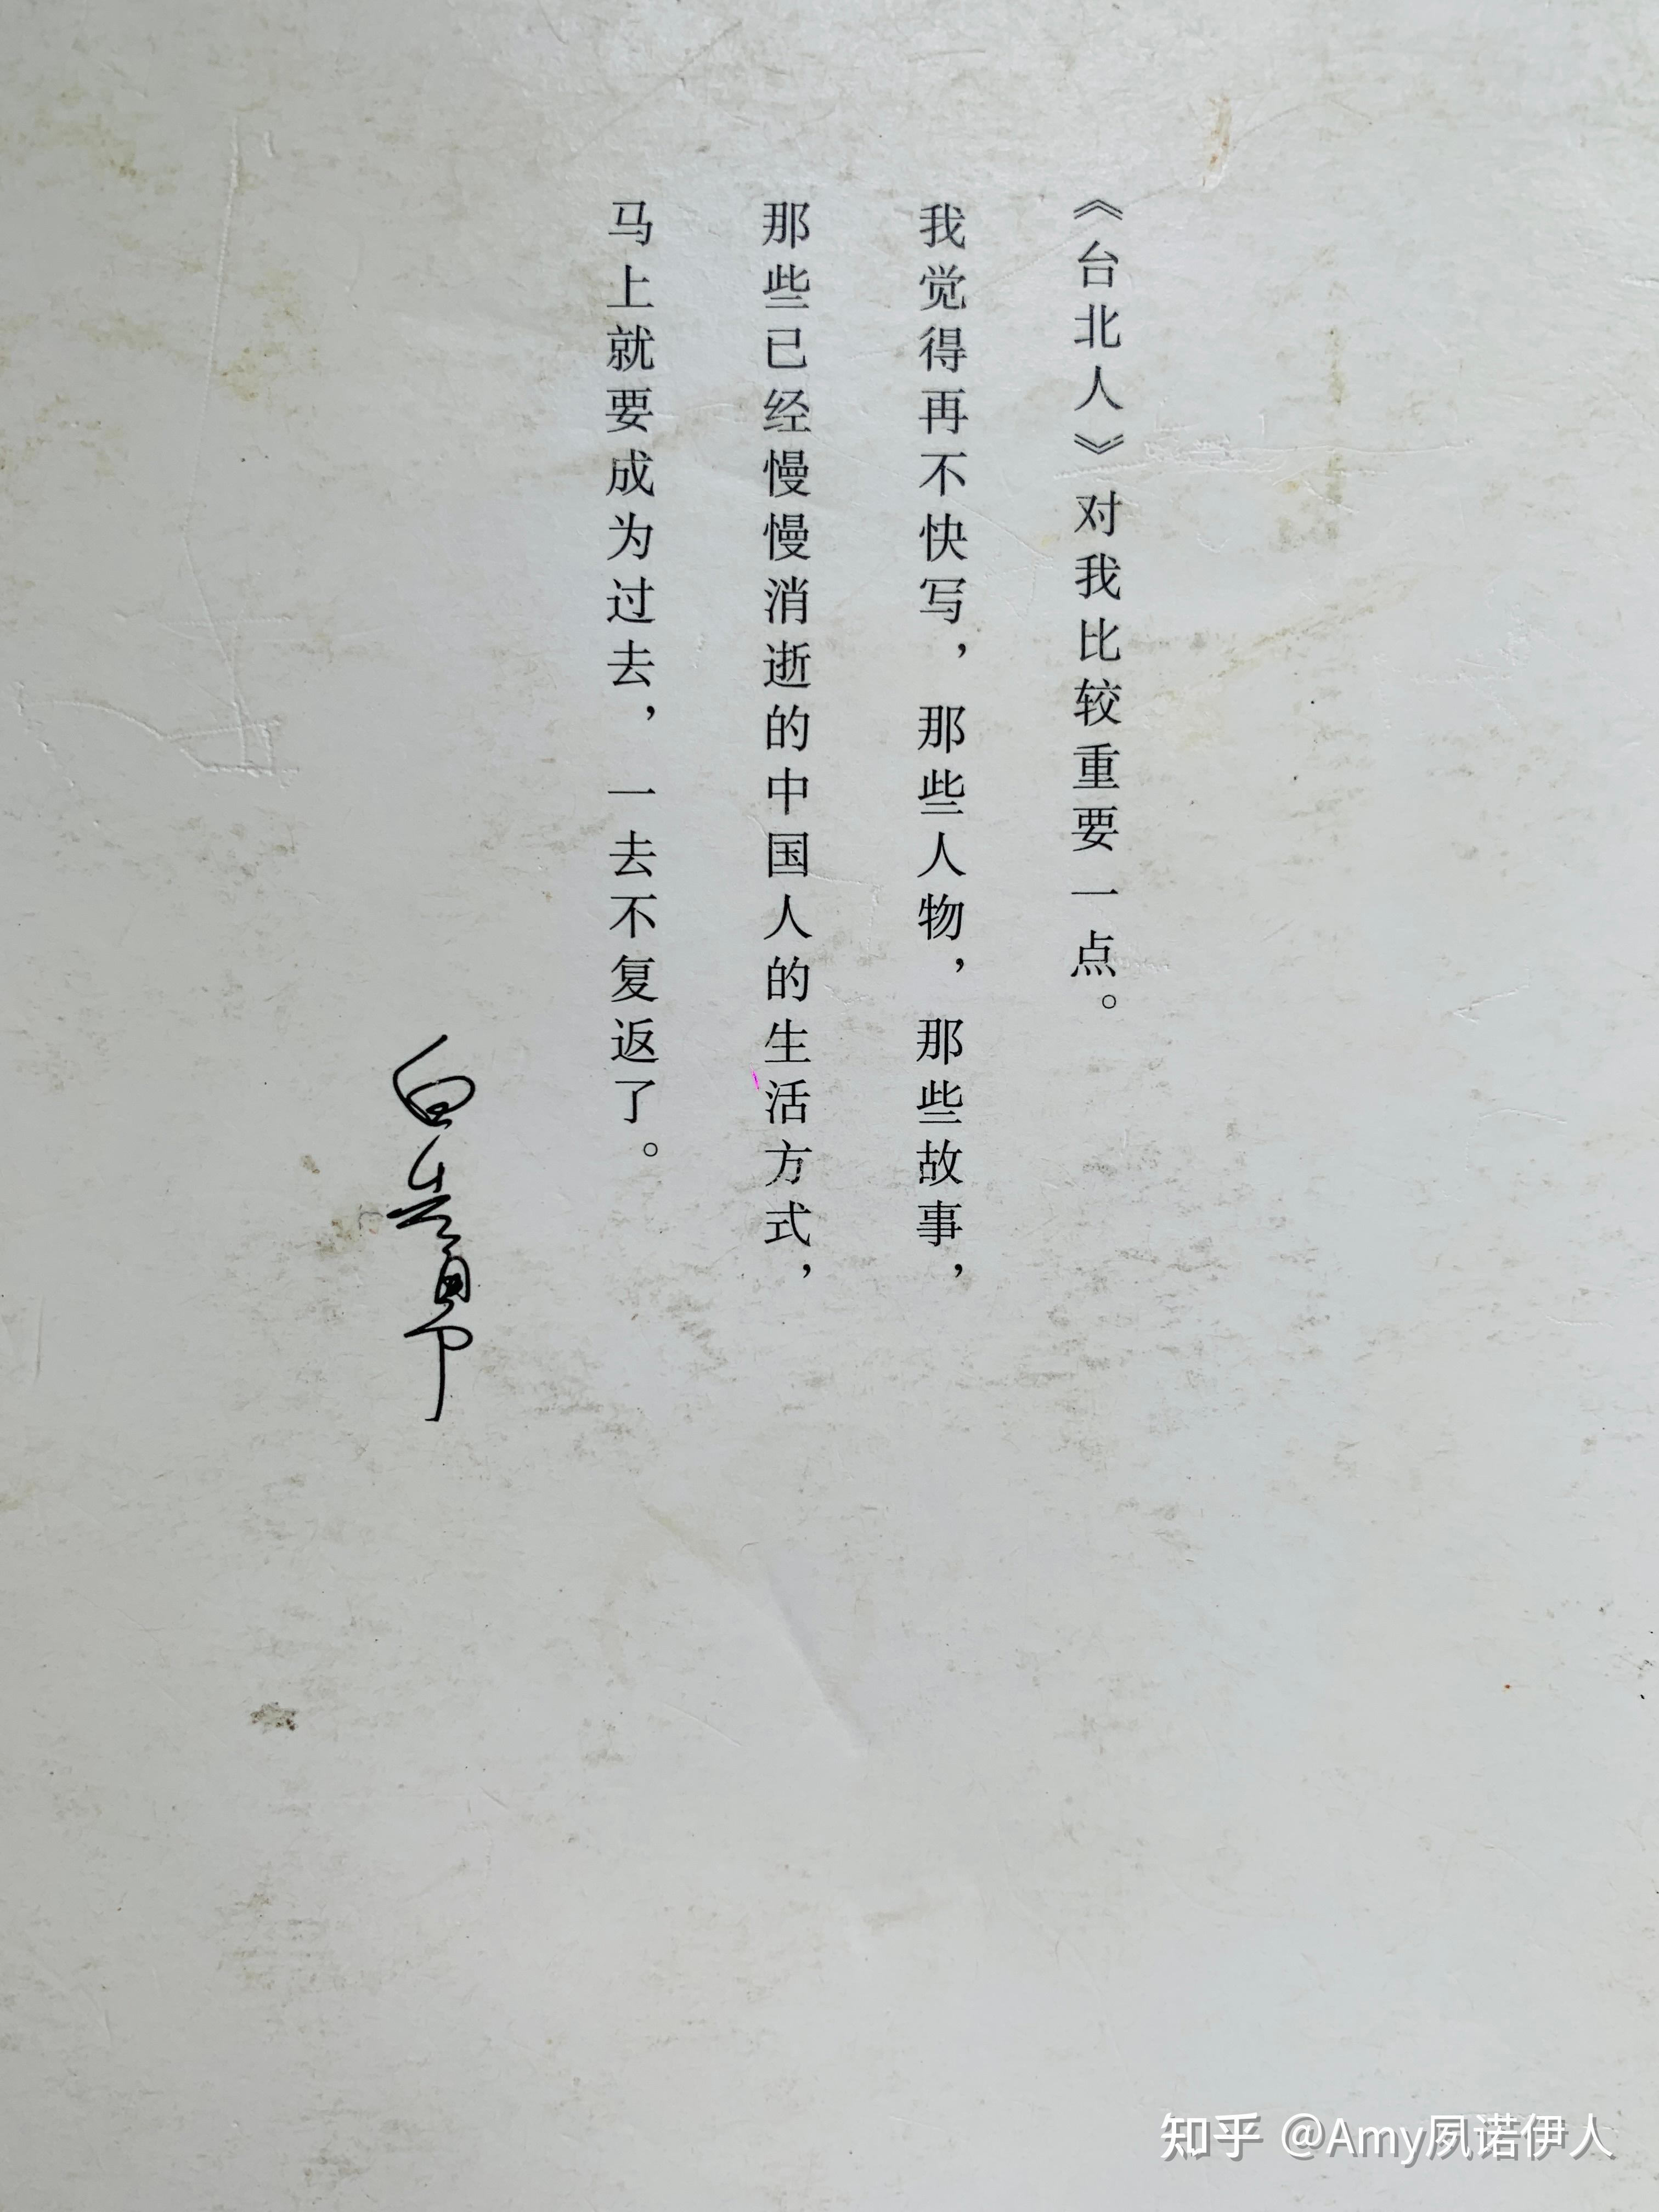 《台北人》对我比较重要一点。
我觉得再不快写，那些人物，那些故事，
那些已经慢慢消逝的中国人的生活方式，
马上就要成为过去，一去不复返了。
白先勇
知乎 @Amy夙诺伊人